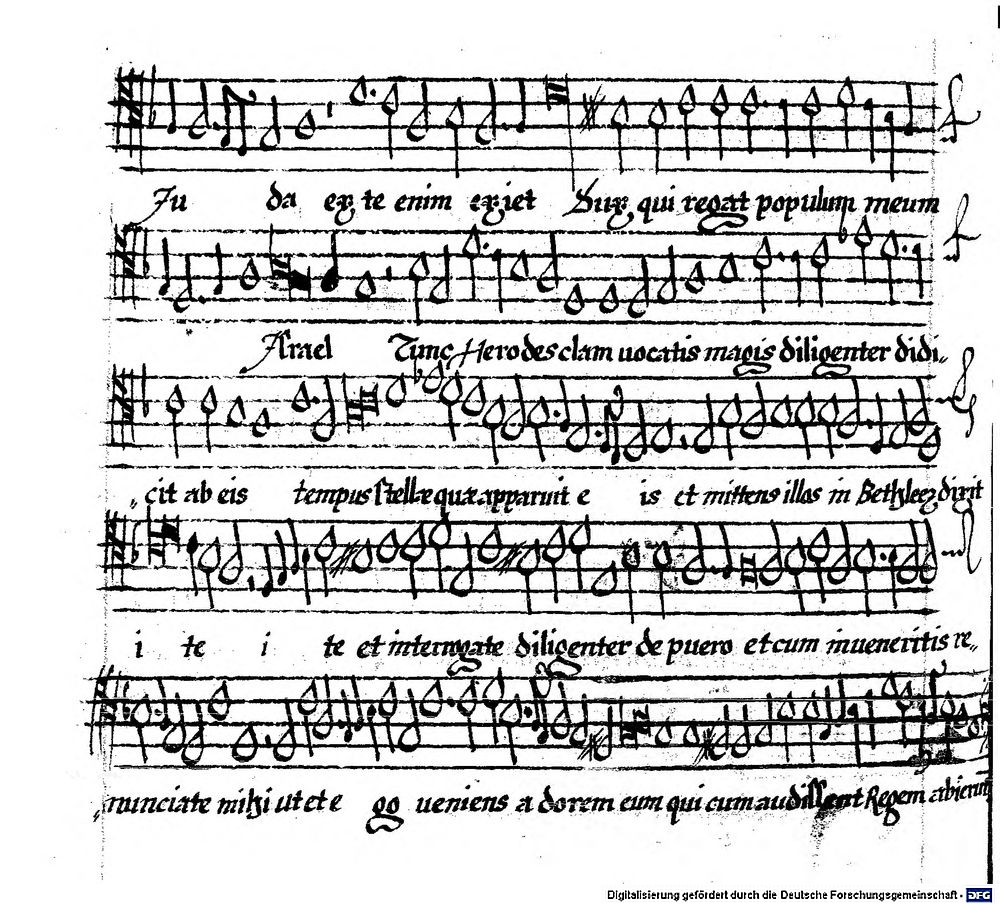 Ju da ex te enim exiet Dux, qui regat populum meum
Israel Tunc Herodes clam uocatis magis diligenter didi„
„cit ab eis tempus stellæ quæ apparuit e is et mittens illos in Bethleez dixit
i te i te et interrogate diligenter de puero et cum inueneritis re„
„nunciate mihi ut et e go ueniens a dorem eum qui cum audissent Regem abierunt
Digitalisierung gefördert durch die Deutsche Forschungsgemeinschaft - DFG